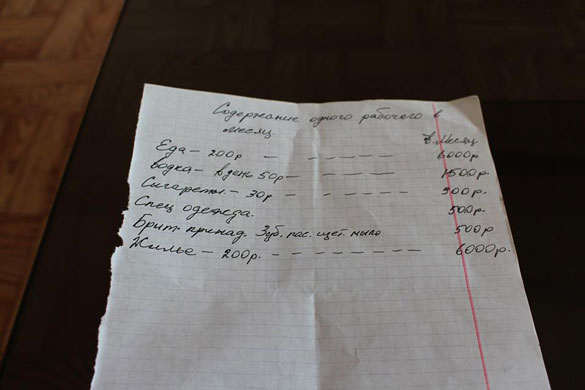 Содержание одного рабочего в
месяц
В месяц
Еда – 200р – – – – – – 6000р
Водка – в день 50р – – – – – 1500р
Сигареты. – 30р – – – – – 900р.
Спец одежда. 500р.
Брит. принад. Зуб. пас. щет. мыло 500р
Жилье – 200р. – – – – – – – – 6000р.